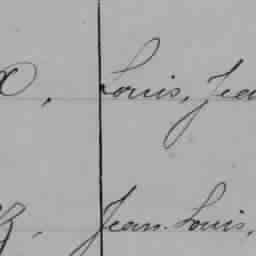 Louis, Jea
Jean Louis,